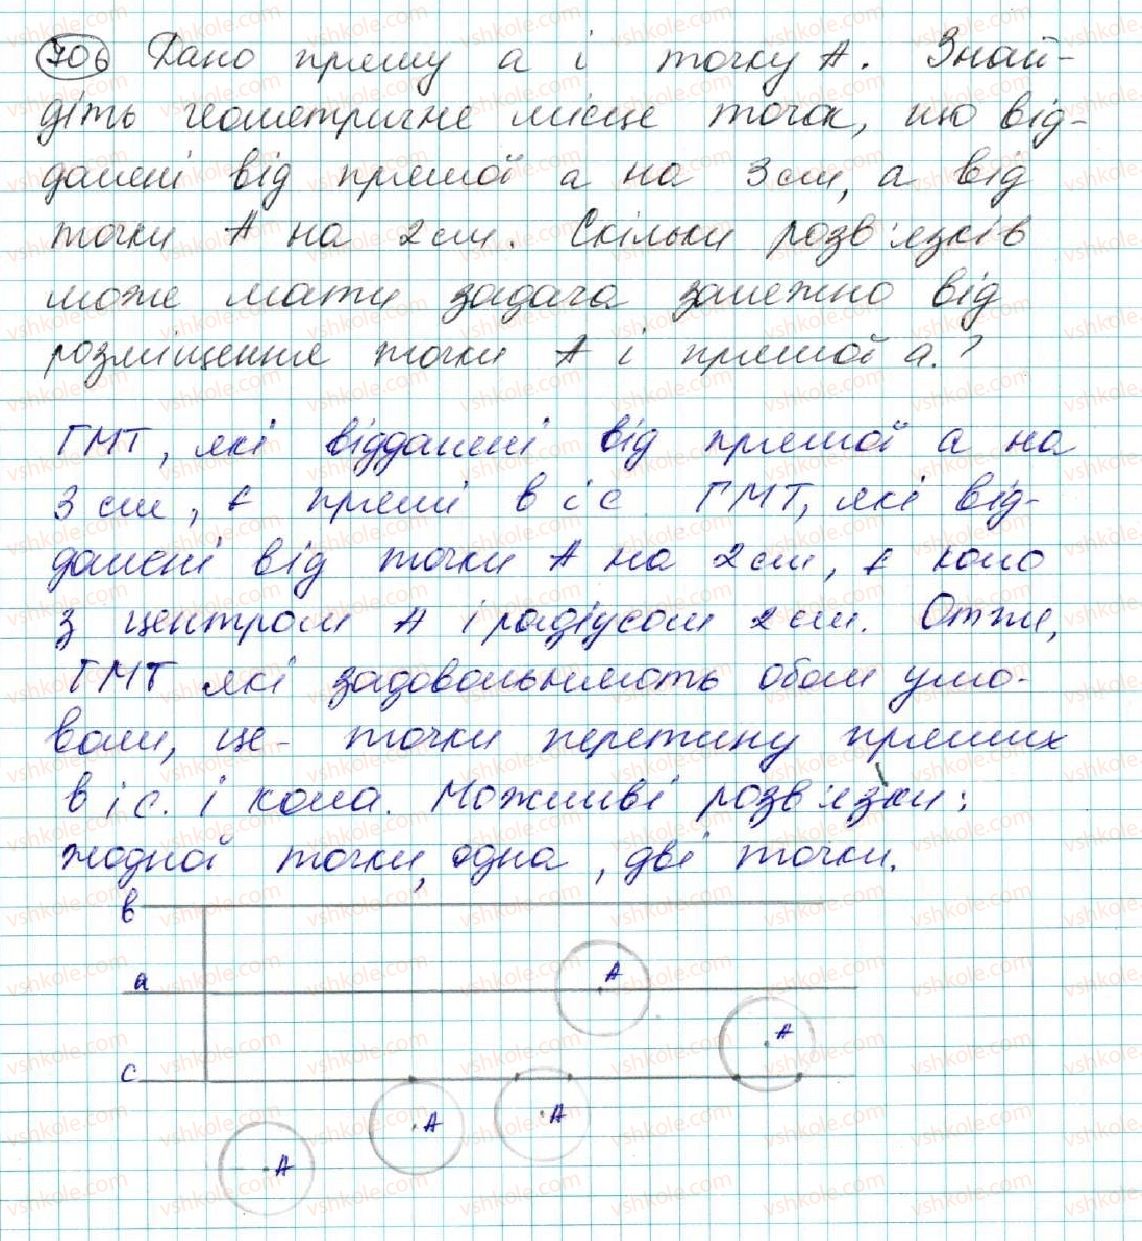 706 Дано пряму а і точку А. Знай-
діть геометричне місце точок, що від-
далені від прямої а на 3см, а від
точки А на 2см. Скільки розв'язків
може мати задача залежно від
розміщення точки А і прямої а.?
ГМТ, які віддалені від прямої а на
3 см, є прямі в і с ГМТ, які від-
далені від точки А на 2см, є коло
з центром А і радіусом 2 см. Отже,
ГМТ які задовольняють обом умо-
вам, це - точки перетину прямих
в і с. і кола. Можливі розв'язки:
жодної точки, одна, дві точки.
в
а
А
А
с
А
А
А
vshkole.com